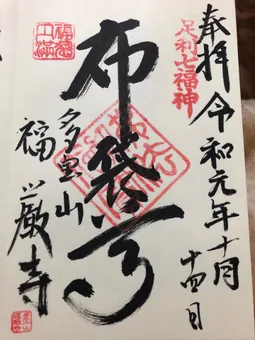 奉拝 令和元年十月
十四日
足利七福神
布袋尊
福徳円満
多宝山
福厳寺